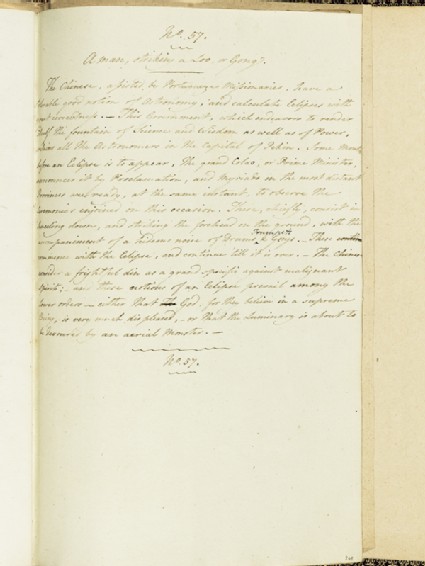 No. 57.
A man, striking a Loo, or Gong.
The Chinese, assisted by Portuguese Missionaries, have a
tolerable good notion of Astronomy, and calculate Eclipses with
great exactness. — This Government, which endeavors to render
itself the fountain of Science and Wisdom as well as of Power,
all the Astronomers in the Capital of Pekin. Some Months
before an Eclipse is to appear, The grand Colao, or Prime Minister,
announces it by Proclamation, and Myriads in the most distant
Provinces are ready, at the same instant, to observe the
Ceremonies enjoined on this occasion. These, chiefly, consist in
kneeling down, and striking the forehead on the ground, with the
accompanyment of a hideous noise of Drums Trumpets & Gongs. These
commence with the Eclipse, and continue till it is over. — The Chinese
consider a frightful din as a grand specific against malignant
Spirits: and these notions of an Eclipse prevail among the
lower orders — either that God, for they believe in a supreme
Being, is very much displeased, — or that the Luminary is about to
be devoured by an aerial Monster. —
No. 57.